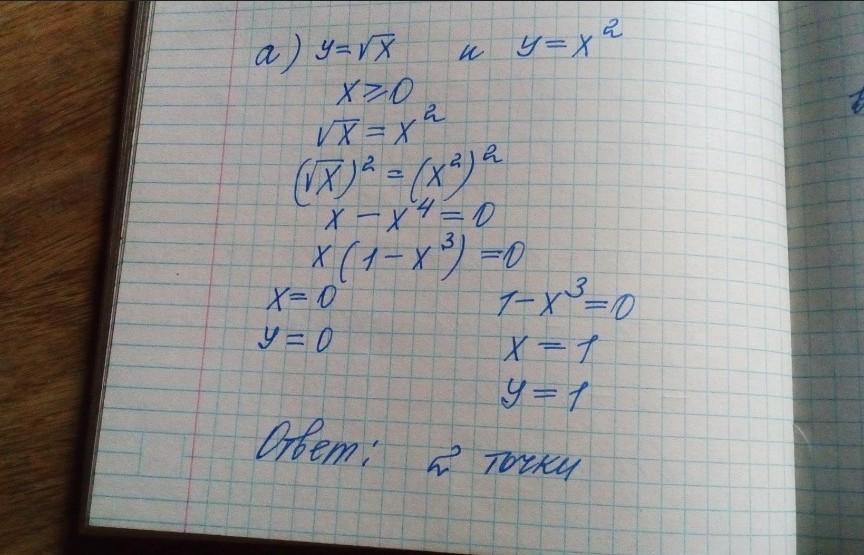 а) y=√x и y=x²
x⩾0
√x=x²
(√x)²=(x²)²
x-x⁴=0
x(1-x³)=0
x=0 1-x³=0
y=0 x=1
y=1
Ответ: 2 точки